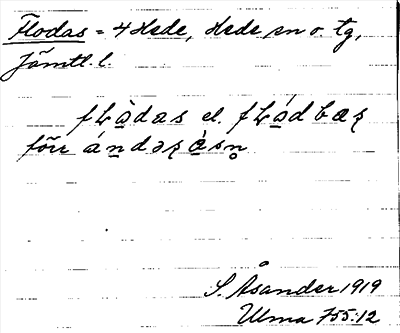 Flodas = 4 Hede, Hede sn o. tg,
Jämtl. l.
fʟò̲das el. fʟó̲dbaʀ
förr án̲dəʀò̲sn̥
S. Åsander 1919
Ulma 755:12